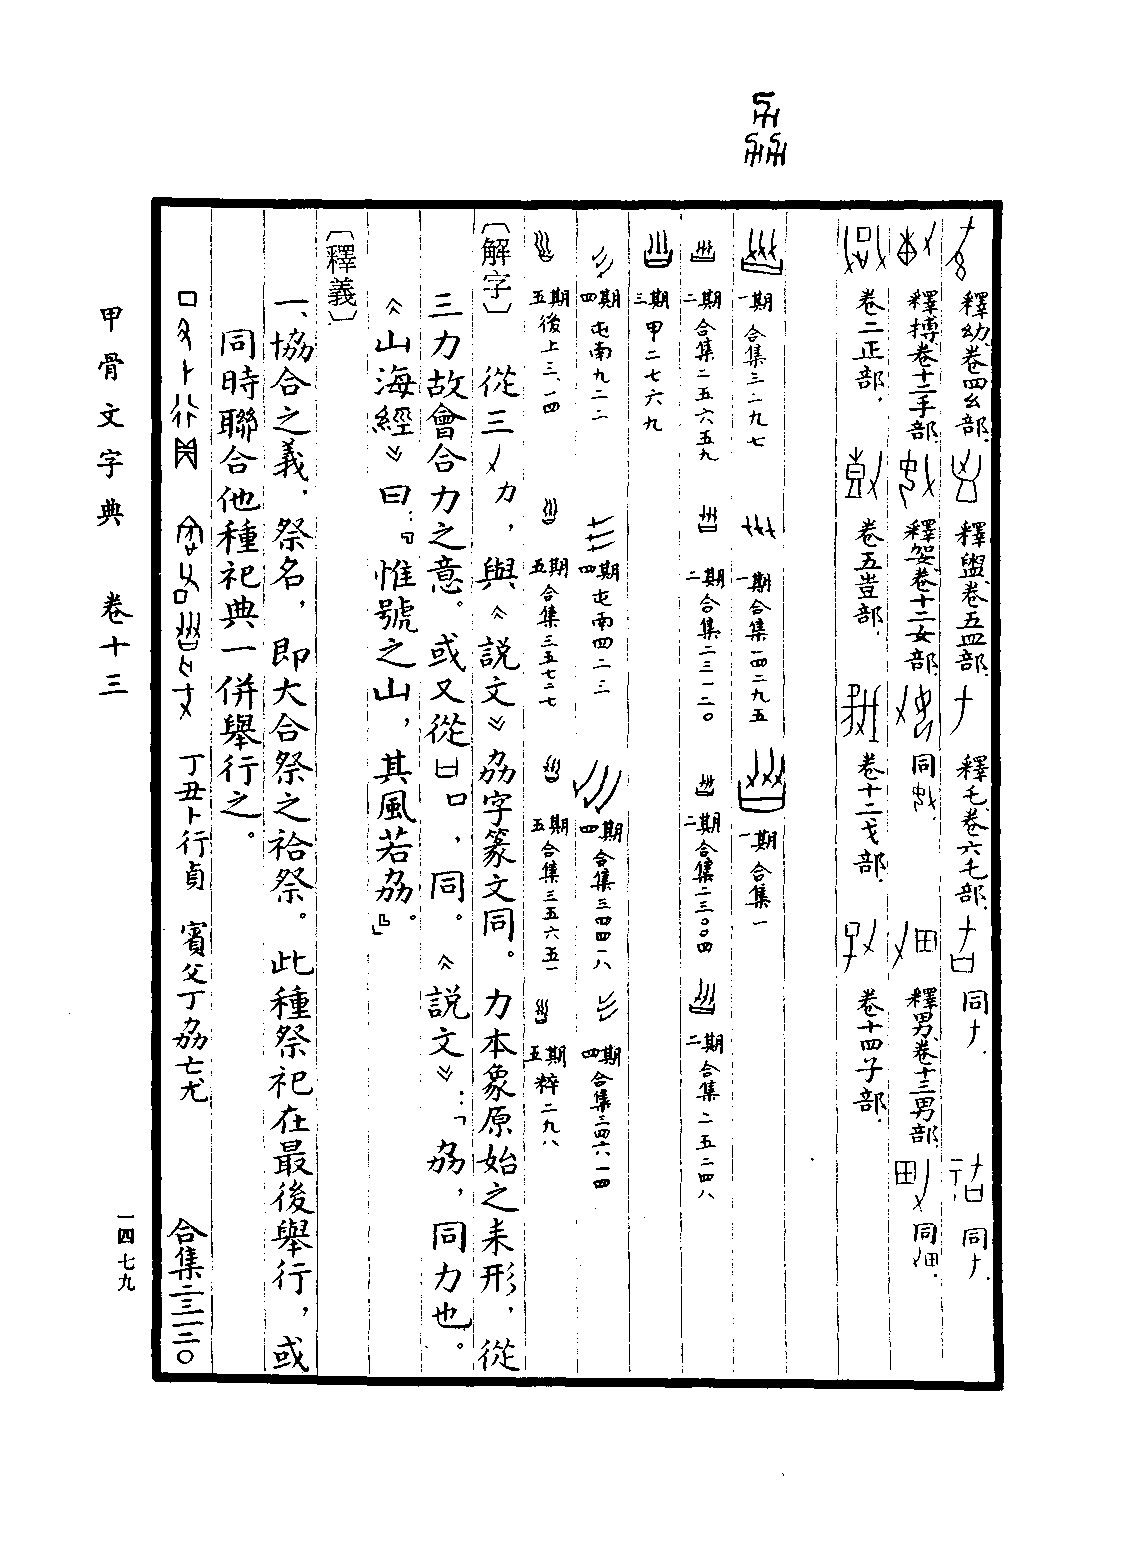 釋幼卷四幺部. 釋盥卷五皿部. 釋乇卷六乇部. 同 同
釋搏卷十二手部. 釋娶卷十二女部. 同 釋男卷十三男部. 同
卷二正部. 卷五豈部. 卷十二戈部. 卷十四子部.
一期 合集三二九七 一期 合集一四二九五 一期 合集一
二期 合集二五六五九 二期 合集二三一二〇 二期 合集二三〇〇四 二期 合集二五二四八
三期 甲二七六九
四期 屯南九二二 四期 屯南四二三 四期 合集三四四一八 四期 合集三四六一四
五期 後上三.一四 五期 合集三五七二七 五期 合集三五六五一 五期 粹二九八
〔解字〕 從三力，與《說文》劦字篆文同。力本象原始之耒形，從
三力故會合力之意。或又從口，同。《說文》：「劦，同力也。
《山海經》曰：『惟號之山，其風若劦。』
〔釋義〕
一、協合之義．祭名，即大合祭之祫祭。此種祭祀在最後舉行，或
同時聯合他種祀典一併舉行之。
丁丑卜行貞 賓父丁劦亡尤 合集二三一二〇
甲骨文字典 卷十三
一四七九